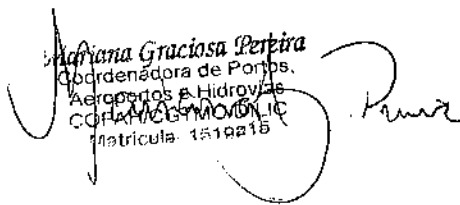 Mariana Graciosa Pereira
Coordenadora de Portos,
Aeroportos e Hidrovias
COPAH/CGTMO/DILIC
Matricula 1519215